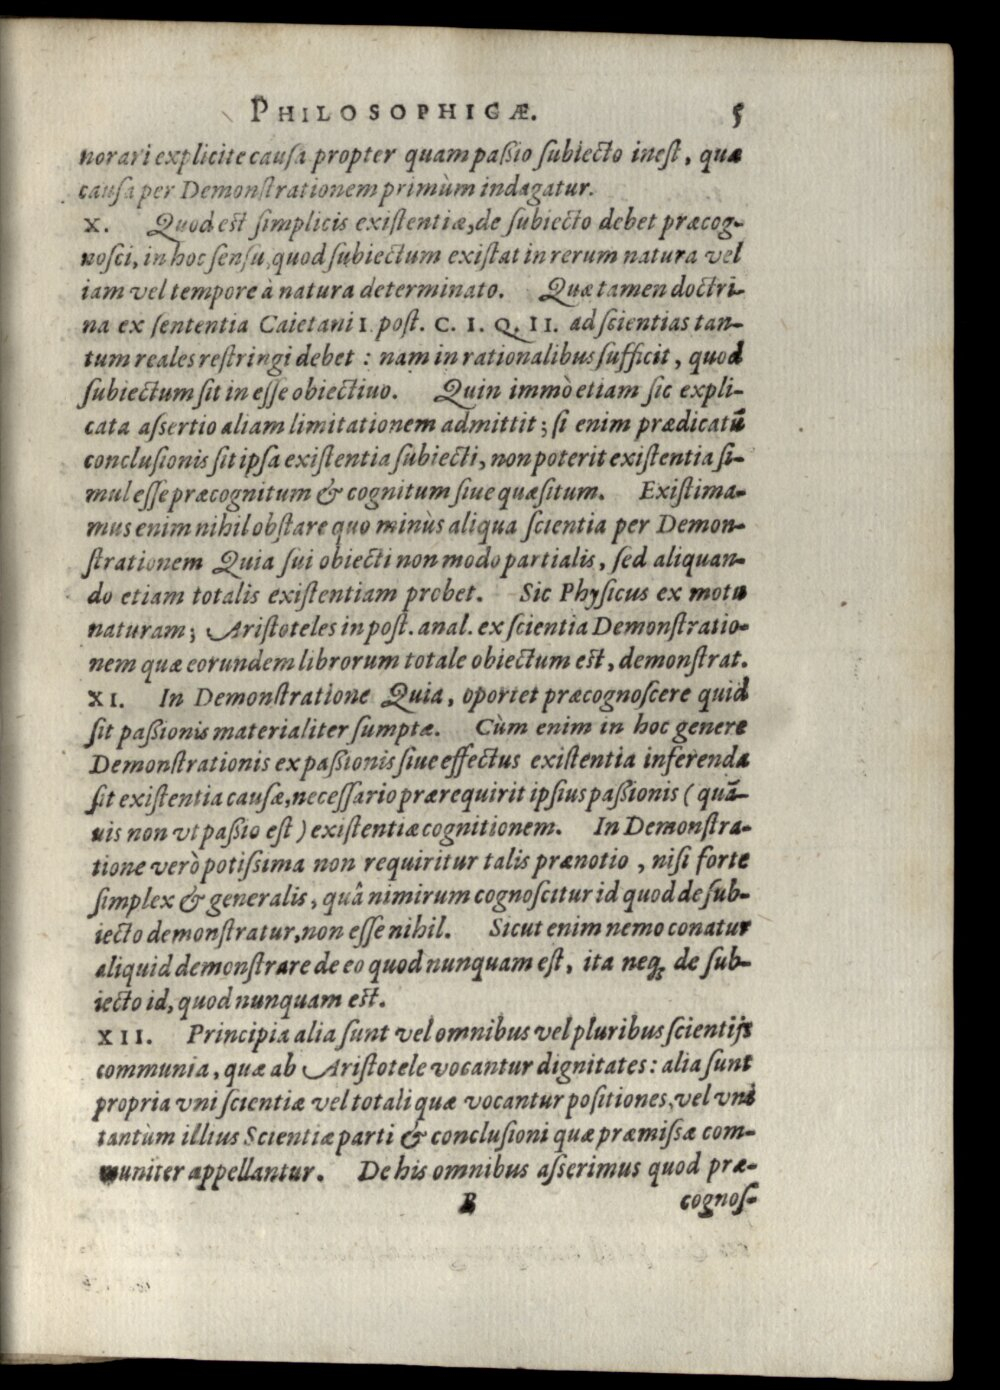 PHILOSOPHICÆ. 5
norari explicite causa propter quam paßio subiecto inest, quæ
causa per Demonstrationem primùm indagatur.
X. Quod est simplicis existentiæ, de subiecto debet præcog-
nosci, in hoc sensu, quod subiectum existat in rerum natura vel
iam vel tempore à natura determinato. Quæ tamen doctri-
na ex sententia Caietani I. post. C. I. Q. II. ad scientias tan-
tum reales restringi debet : nam in rationalibus sufficit, quod
subiectum sit in esse obiectiuo. Quin immò etiam sic expli-
cata assertio aliam limitationem admittit ; si enim prædicatū
conclusionis sit ipsa existentia subiecti, non poterit existentia si-
mul esse præcognitum & cognitum siue quæsitum. Existima-
mus enim nihil obstare quo minùs aliqua scientia per Demon-
strationem Quia sui obiecti non modo partialis, sed aliquan-
do etiam totalis existentiam probet. Sic Physicus ex motu
naturam ; Aristoteles in post. anal. ex scientia Demonstratio-
nem quæ eorundem librorum totale obiectum est, demonstrat.
XI. In Demonstratione Quia, oportet præcognoscere quid
sit paßionis materialiter sumptæ. Cùm enim in hoc genere
Demonstrationis ex paßionis siue effectus existentia inferenda
sit existentia causæ, necessario prærequirit ipsius paßionis ( quā-
uis non vt paßio est ) existentiæ cognitionem. In Demonstra-
tione verò potissima non requiritur talis prænotio , nisi forte
simplex & generalis, quâ nimirum cognoscitur id quod de sub-
iecto demonstratur, non esse nihil. Sicut enim nemo conatur
aliquid demonstrare de eo quod nunquam est, ita neq; de sub-
iecto id, quod nunquam est.
XII. Principia alia sunt vel omnibus vel pluribus scientijs
communia, quæ ab Aristotele vocantur dignitates : alia sunt
propria vni scientiæ vel totali quæ vocantur positiones, vel vni
tantùm illius Scientiæ parti & conclusioni quæ præmissæ com-
muniter appellantur. De his omnibus asserimus quod præ-
B cognos-